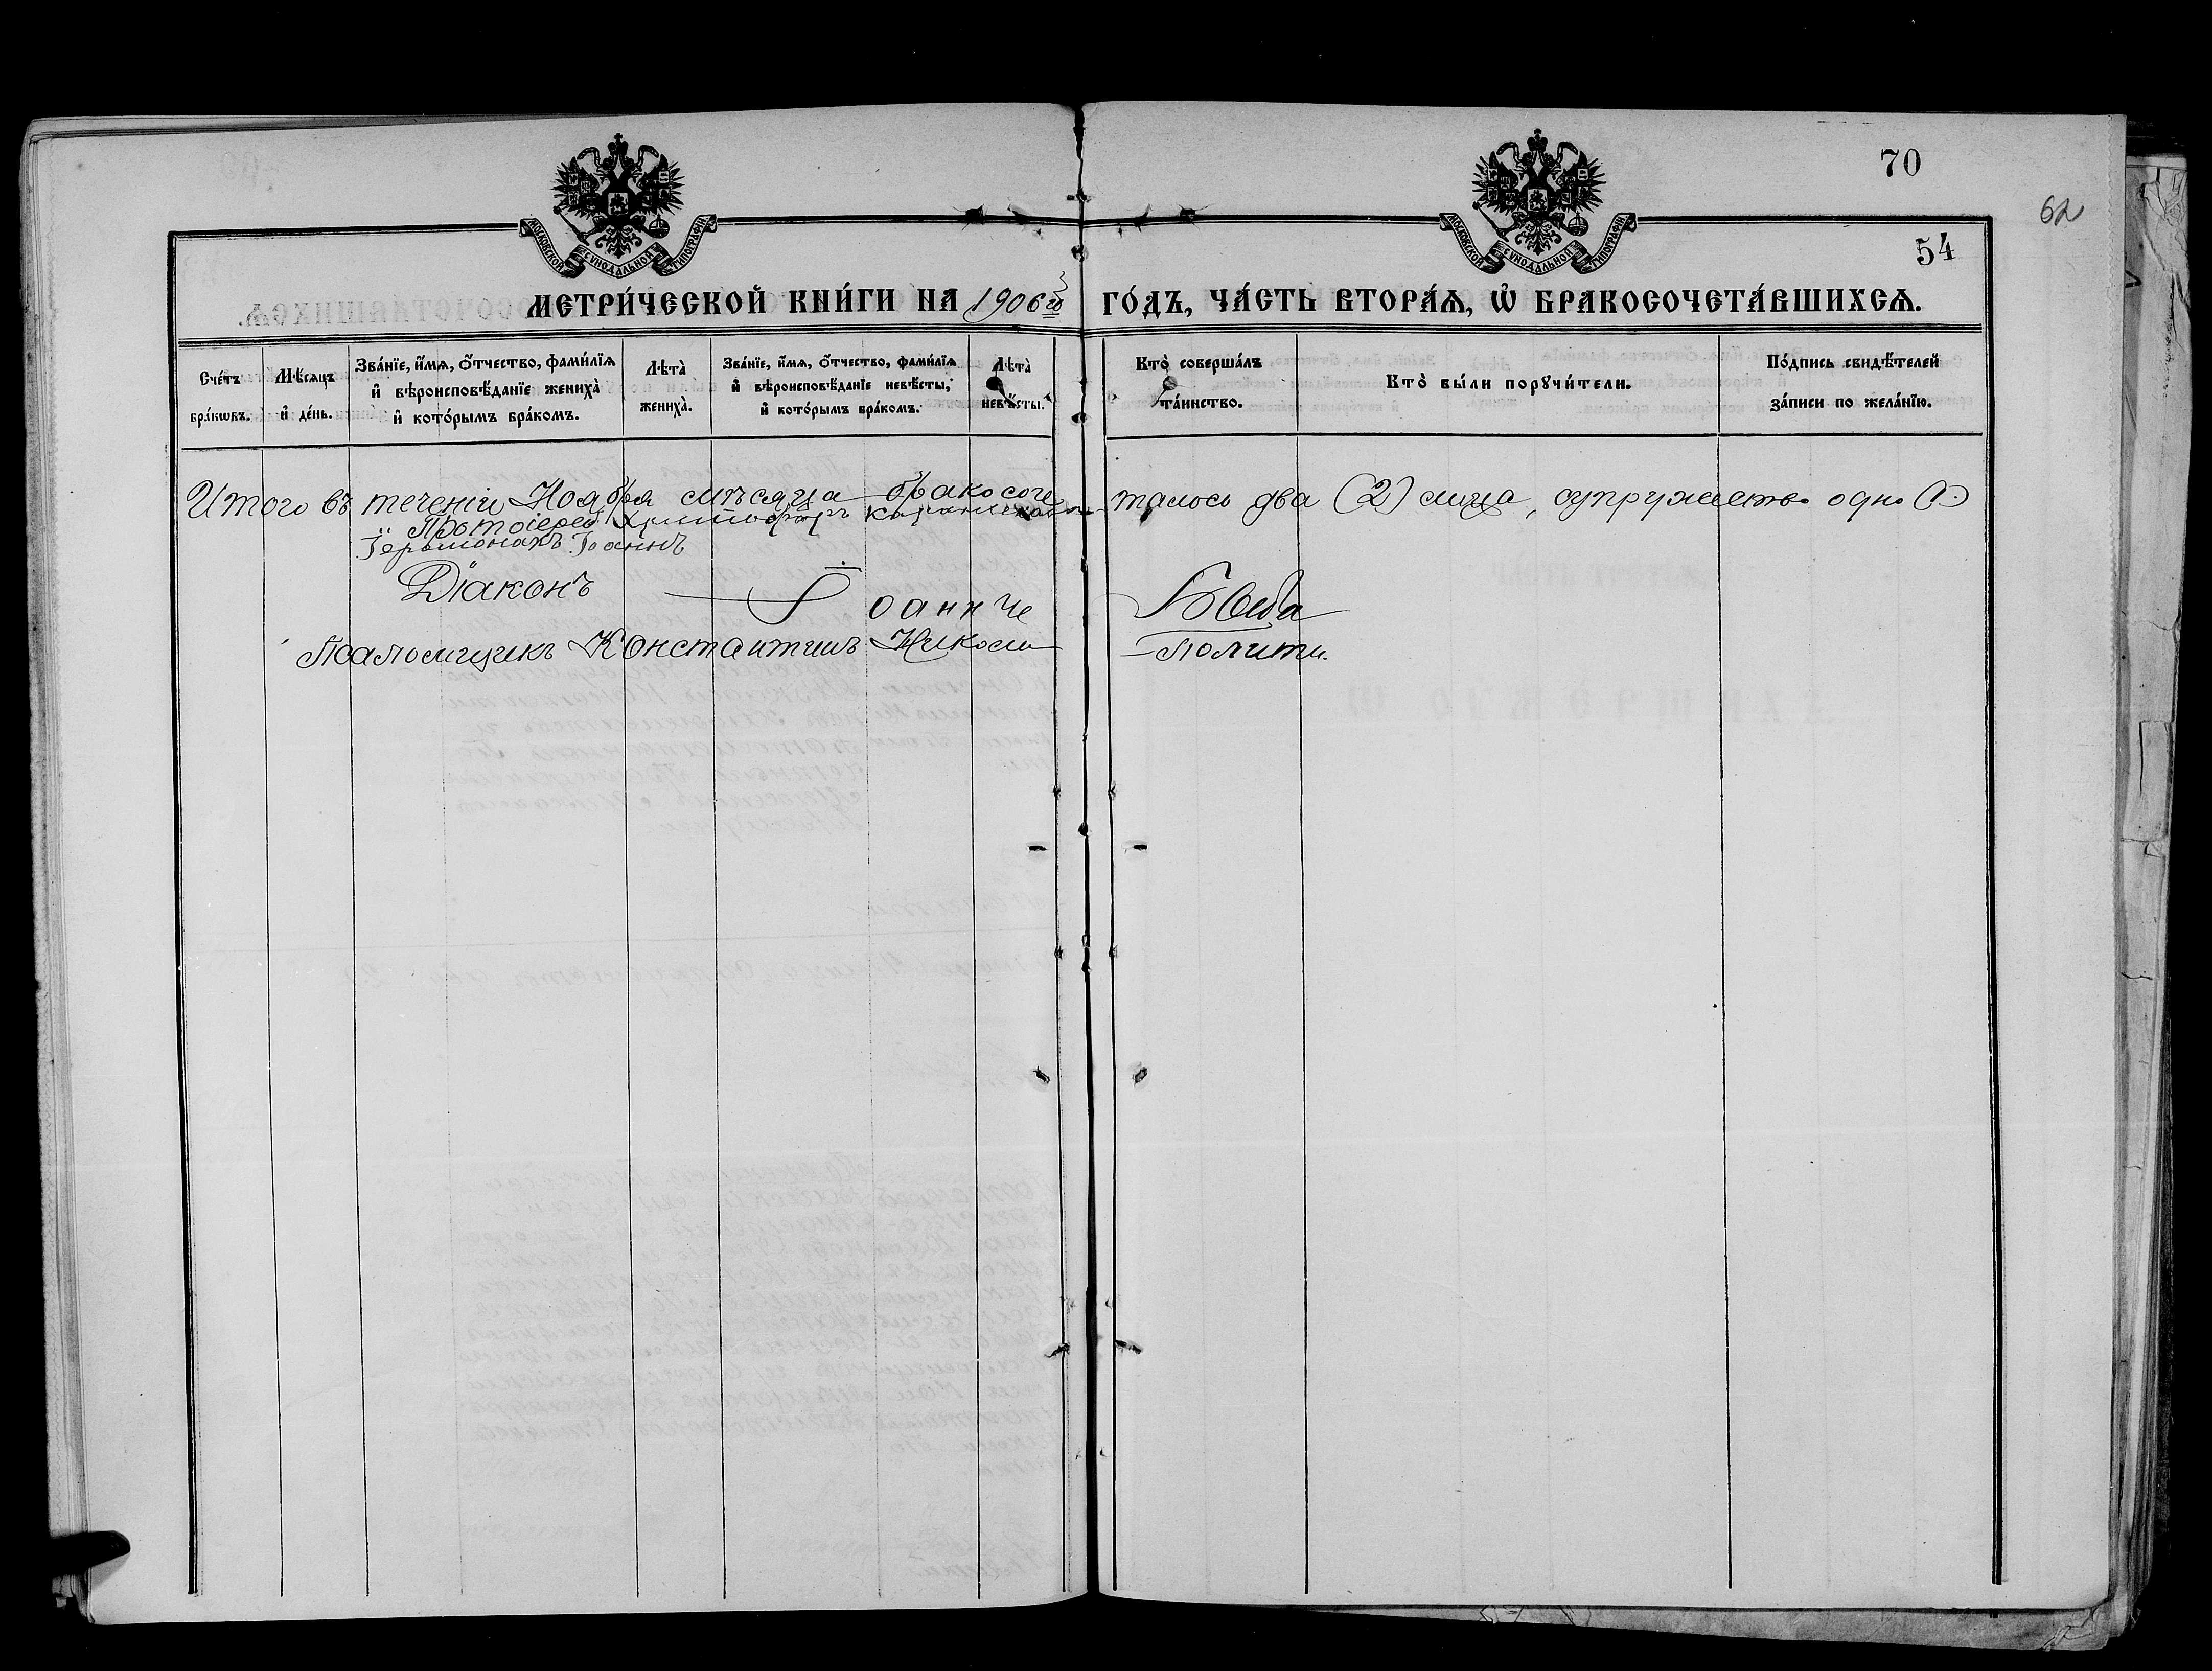 70
62
МОСКОВСКОЙ СѴНОДАЛЬНОЙ ТИПОГРАФІИ
МОСКОВСКОЙ СѴНОДАЛЬНОЙ ТИПОГРАФІИ
54
МЕТРИ́ЧЕСКОЙ КНИ́ГИ НА 1906й ГО́ДЪ, ЧА́СТЬ ВТОРА́Я, Ѡ҆ БРАКОСОЧЕТА́ВШИХСЯ.
Сче́тъ бра́кѡвъ.
Мѣ́сяцъ и҆ де́нь.
Зва́нїе, и҆́мя, о҆́тчество, фами́лїя и҆ вѣроисповѣ́данїе жениха̀ и҆ кото́рымъ бра́комъ.
Лѣта̀ жениха̀.
Зва́нїе, и҆́мя, о҆́тчество, фами́лїя и҆ вѣроисповѣ́данїе невѣ́сты, и҆ кото́рымъ бра́комъ.
Лѣта̀ невѣ́сты.
Кто̀ соверша́лъ та́инство.
Кто̀ бы́ли порꙋчи́тели.
По́дпись свидѣ́телей за́писи по жела́нїю.
Итого въ теченіи Ноября мѣсяца бракосочеталось два (2) лица, супружество одно (1)
Протоіерей Христофоръ
Іеромонахъ Іоаннъ
Діаконъ Іоанн
Псаломщикъ Константинъ Никола Полити.